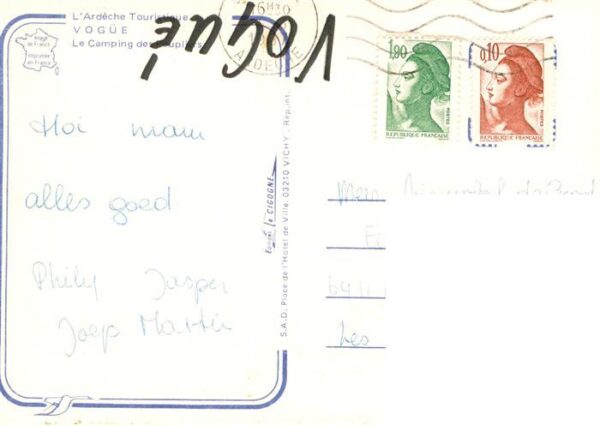 L'Ardèche Touristique
VOGÜE
Le Camping des Peupliers
image de France
imprimée en France
VOGüé
Hoi mam
alles goed
Phily Jasper
Joep Martin
Editions la CIGOGNE
S.A.D. Place de l'Hotel de Ville. 03210 VICHY. Rép.int.
1,90
REPUBLIQUE FRANÇAISE
POSTES
0,10
REPUBLIQUE FRANÇAISE
POSTES
Les